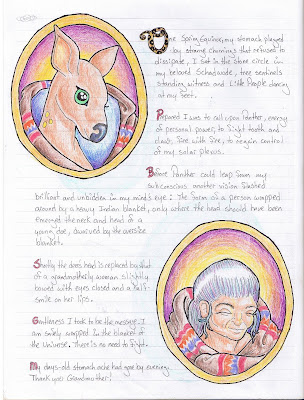 One Spring Equinox, my stomach played
host to strange churnings that refused to
dissipate. I sat in the stone circle in
my beloved Schedwude, tree sentinels
standing witness and Little People dancing
at my feet.
Prepared I was to call upon Panther, energy
of personal power, to fight tooth and
claw, fire with fire, to regain control
of my solar plexus.
Before Panther could leap from my
subconscious another vision flashed
brilliant and unbidden in my mind's eye: The form of a person wrapped
around by a heavy Indian blanket, only where the head should have been
emerged the neck and head of a
young doe, dwarved by the oversize
blanket.
Shortly the doe's head is replaced by that
of a grandmotherly woman slightly
bowed with eyes closed and a half-
smile on her lips.
Gentleness I took to be the message. I
am safely wrapped in the blanket of
the Universe. There is no need to fight.
My days-old stomach ache had gone by evening.
Thank you Grandmother!